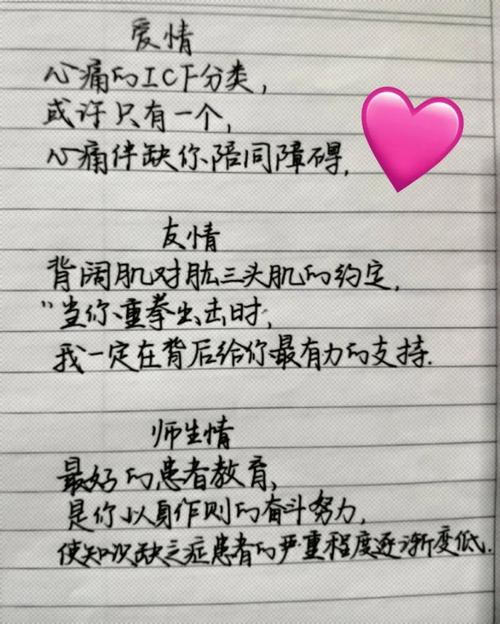 爱情
心痛的ICF分类,
或许只有一个,
心痛伴缺你陪同障碍,
友情
背阔肌对肱三头肌的约定,
"当你重拳出击时,
我一定在背后给你最有力的支持.
师生情
最好的患者教育,
是你以身作则的奋斗努力,
使知识缺乏症患者的严重程度逐渐变低.